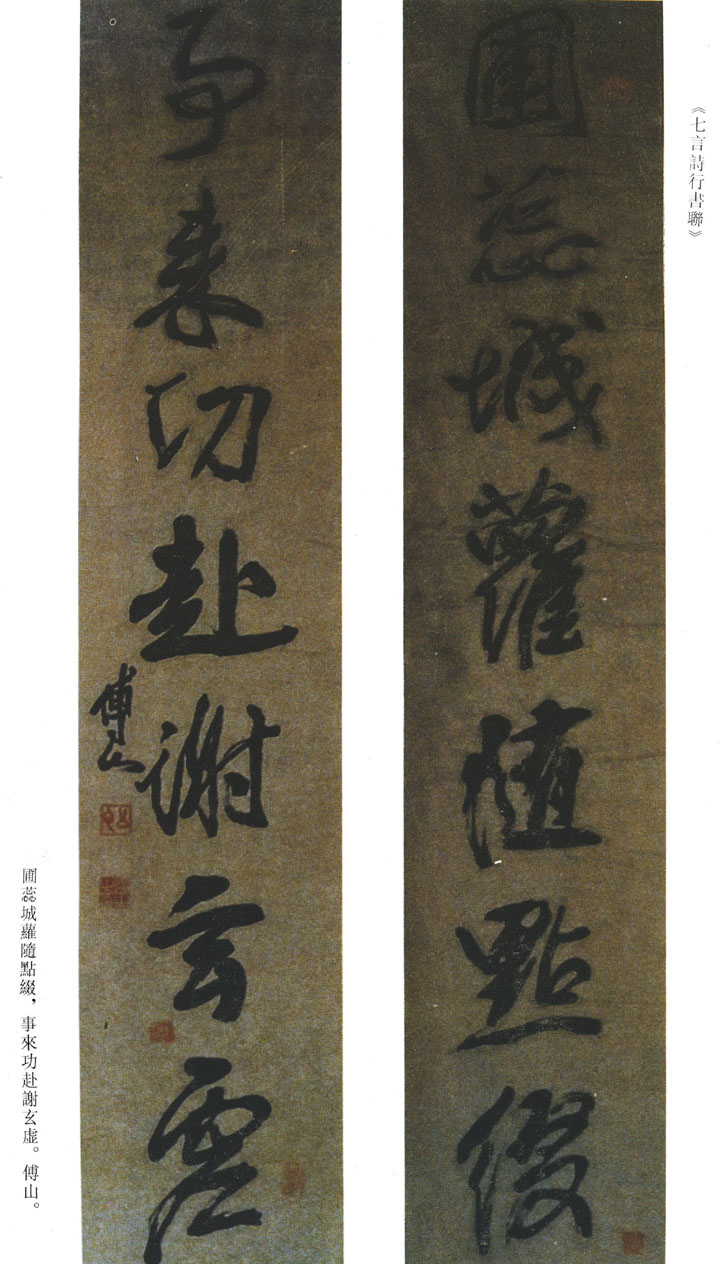 《七言詩行書聯》
圃蕊城蘿隨點綴
事來功赴謝玄虛
傅山
圃蕊城蘿隨點綴，事來功赴謝玄虛。傅山。